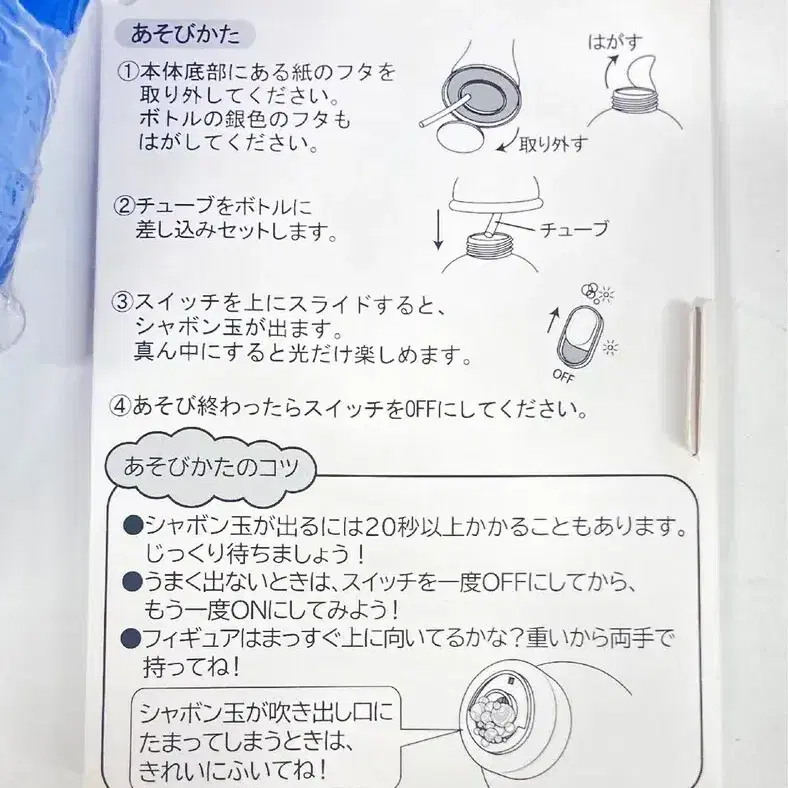 あそびかた
①本体底部にある紙のフタを
取り外してください。
ボトルの銀色のフタも
はがしてください。
はがす
取り外す
②チューブをボトルに
差し込みセットします。
チューブ
③スイッチを上にスライドすると、
シャボン玉が出ます。
真ん中にすると光だけ楽しめます。
OFF
④あそび終わったらスイッチをOFFにしてください。
あそびかたのコツ
●シャボン玉が出るには20秒以上かかることもあります。
じっくり待ちましょう！
●うまく出ないときは、スイッチを一度OFFにしてから、
もう一度ONにしてみよう！
●フィギュアはまっすぐ上に向いてるかな？重いから両手で
持ってね！
シャボン玉が吹き出し口に
たまってしまうときは、
きれいにふいてね！